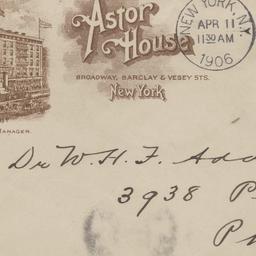 Astor
House
BROADWAY, BARCLAY & VESEY STS.
New York
MANAGER.
NEW YORK, N.Y.
APR 11
11 30 AM
1906
Dr W. H. F. Add
3938 P
P